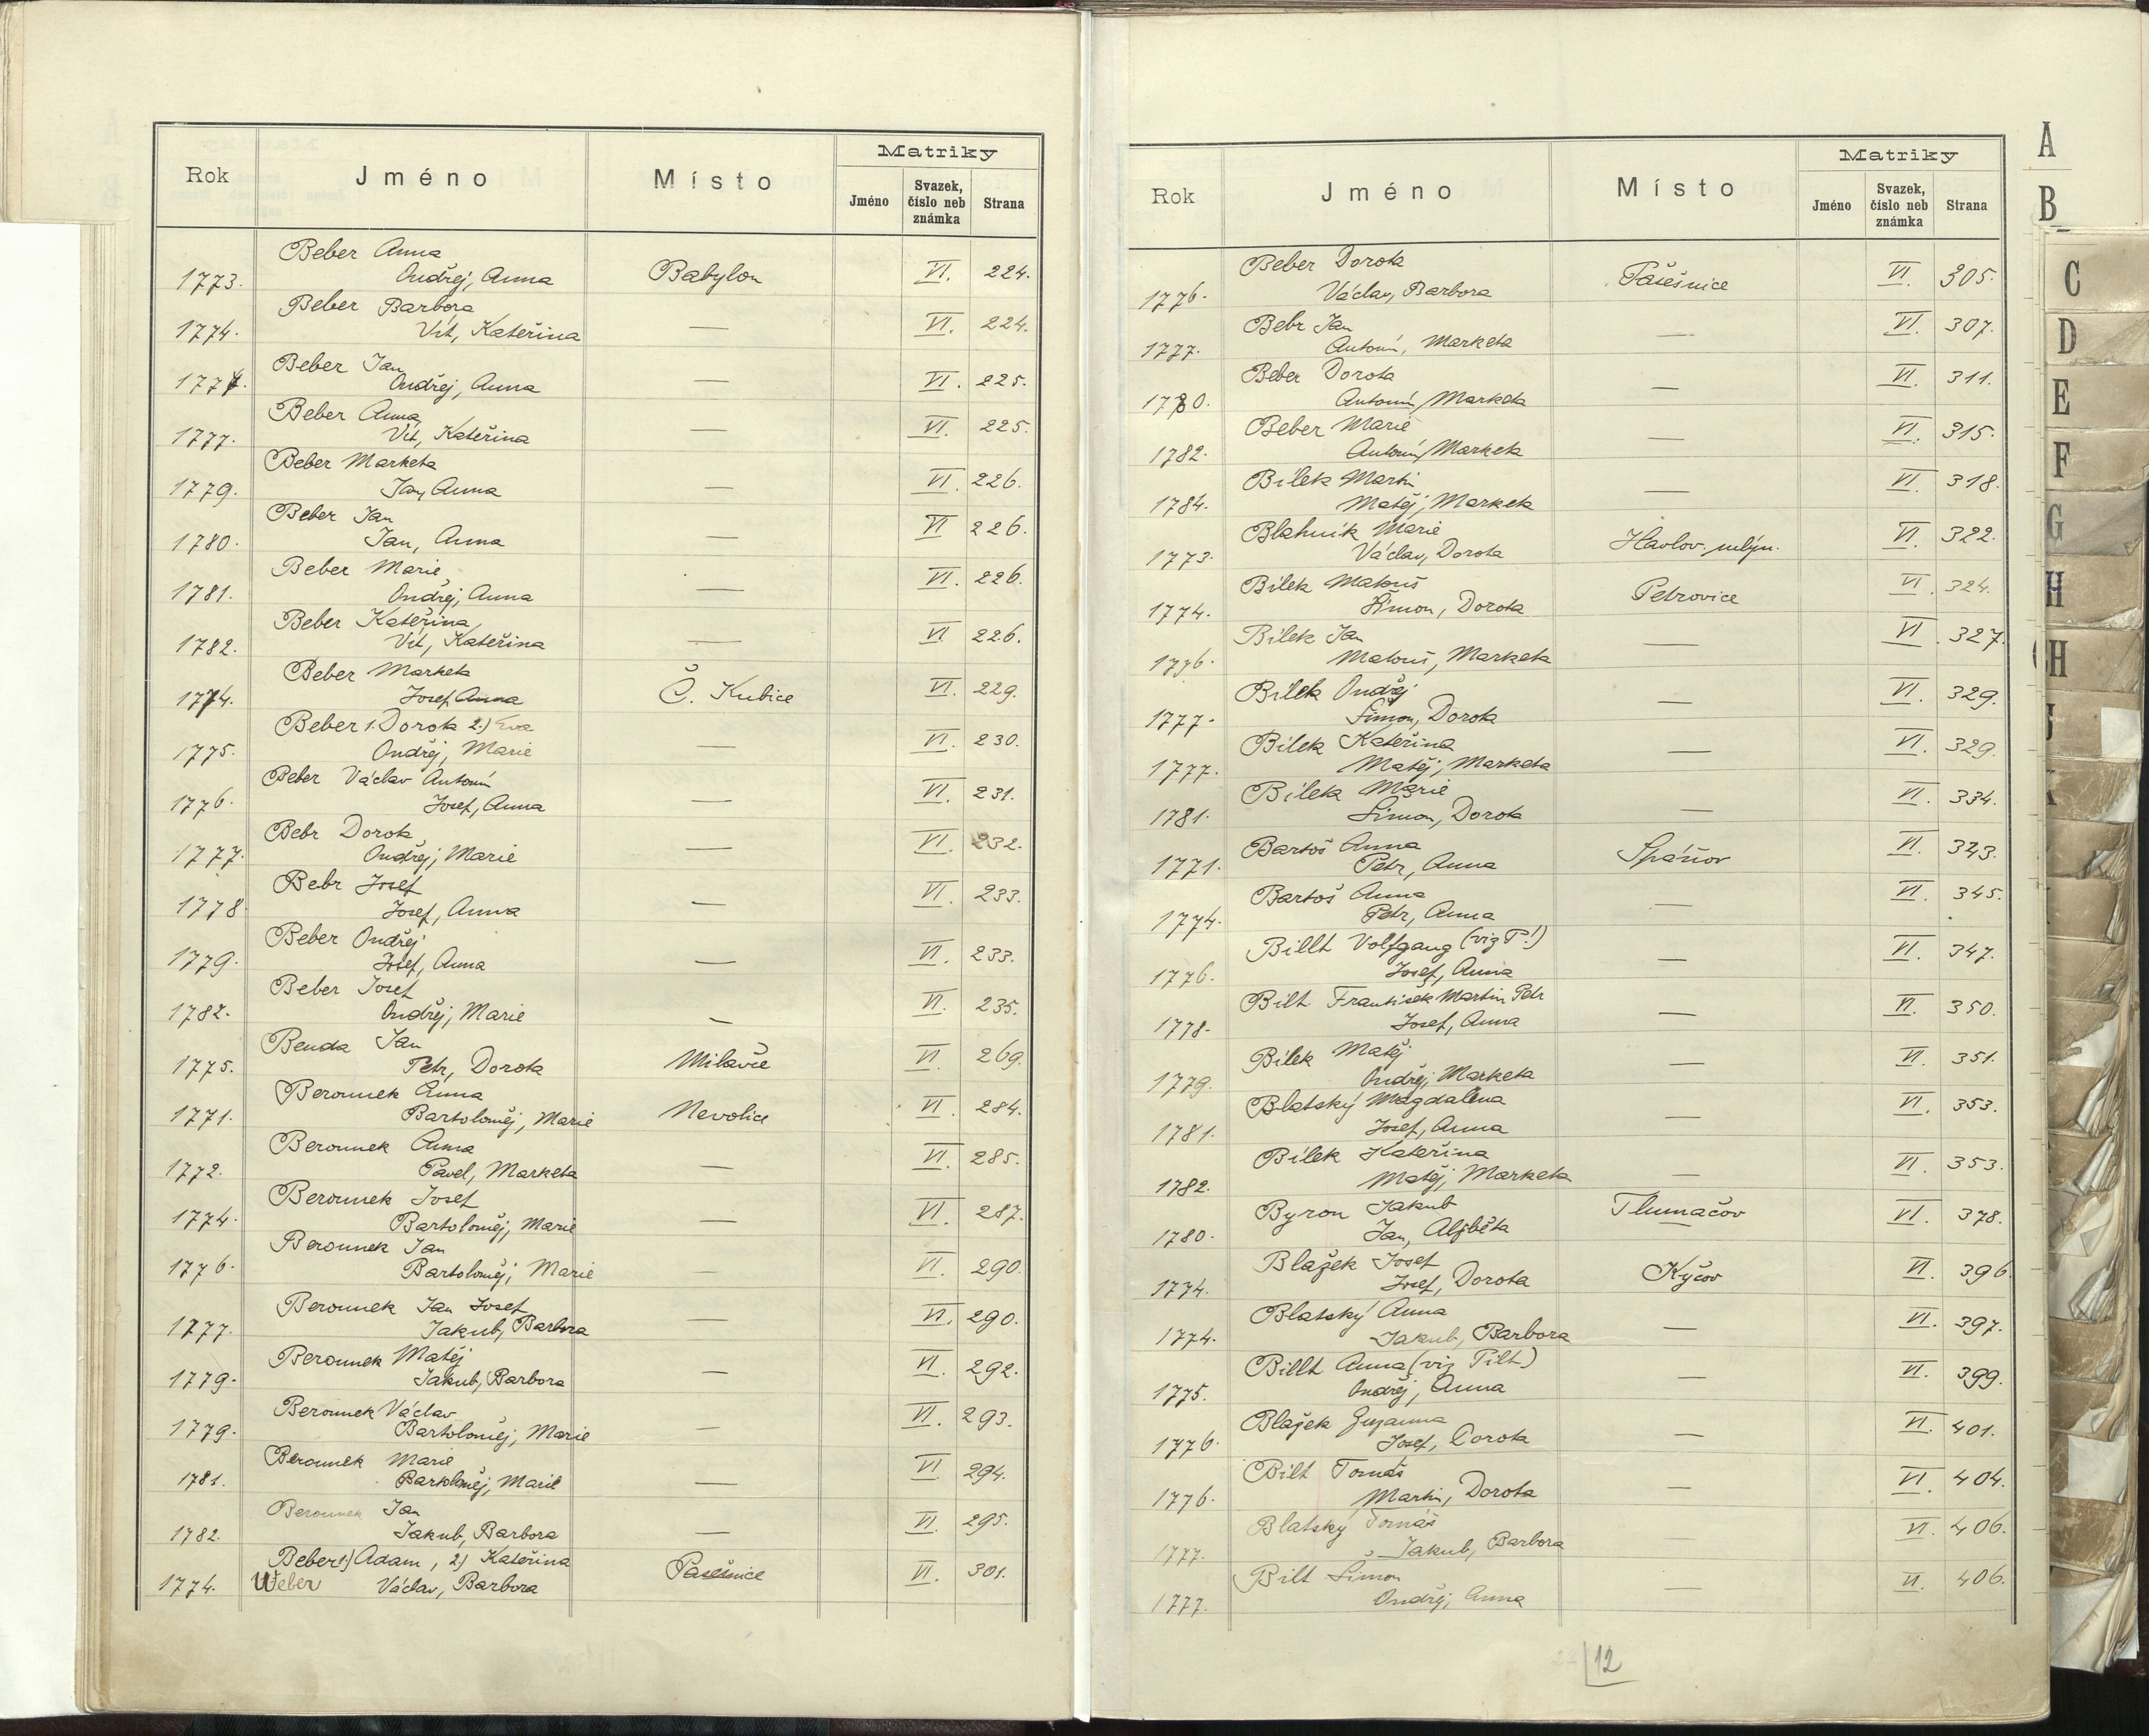 Rok Jméno Místo Matriky
Jméno Svazek, číslo neb známka Strana
Beber Anna
1773. Ondřej, Anna Babylon VI. 224.
Beber Barbora
1774. Vít, Kateřina — VI. 224.
Beber Jan
1774. Ondřej, Anna — VI. 225.
Beber Anna
1777. Vít, Kateřina — VI. 225.
Beber Marketa
1779. Jan, Anna — VI. 226.
Beber Jan
1780. Jan, Anna — VI 226.
Beber Marie
1781. Ondřej, Anna — VI. 226.
Beber Kateřina
1782. Vít, Kateřina — VI 226.
Beber Marketa
1774. Josef Anna Č. Kubice VI. 229.
Beber 1. Dorota 2.) Eva
1775. Ondřej, Marie — VI. 230.
Beber Václav Antonín
1776. Josef, Anna — VI. 231.
Bebr Dorota
1777. Ondřej, Marie — VI. 232.
Bebr Josef
1778. Josef, Anna — VI. 233.
Beber Ondřej
1779. Josef, Anna — VI. 233.
Beber Josef
1782. Ondřej, Marie — VI. 235.
Benda Jan
1775. Petr, Dorota Milavče VI. 269.
Berounek Anna
1771. Bartoloměj, Marie Nevolice VI. 284.
Berounek Anna
1772. Pavel, Marketa — VI. 285.
Berounek Josef
1774. Bartoloměj, Marie — VI. 287.
Berounek Jan
1776. Bartoloměj, Marie — VI. 290.
Berounek Jan Josef
1777. Jakub, Barbora — VI. 290.
Berounek Matěj
1779. Jakub, Barbora — VI. 292.
Berounek Václav
1779. Bartoloměj, Marie — VI. 293.
Berounek Marie
1781. Bartoloměj, Marie — VI. 294.
Berounek Jan
1782. Jakub, Barbora — VI. 295.
Beber 1.) Adam, 2.) Kateřina
1774. Weber Václav, Barbora Pasečnice VI. 301.
Rok Jméno Místo Matriky
Jméno Svazek, číslo neb známka Strana
Beber Dorota
1776. Václav, Barbora Pasečnice VI. 305.
Bebr Jan
1777. Antonín, Marketa — VI. 307.
Beber Dorota
1780. Antonín, Marketa — VI. 311.
Beber Marie
1782. Antonín, Marketa — VI. 315.
Bílek Martin
1784. Matěj, Marketa — VI. 318.
Blahník Marie
1773. Václav, Dorota Havlov. mlýn. VI. 322.
Bílek Matouš
1774. Šimon, Dorota Petrovice VI. 324.
Bílek Jan
1776. Matouš, Marketa — VI. 327.
Bílek Ondřej
1777. Šimon, Dorota — VI. 329.
Bílek Kateřina
1777. Matěj, Marketa — VI. 329.
Bílek Marie
1781. Šimon, Dorota — VI. 334.
Bartoš Anna
1771. Petr, Anna Spáňov VI. 343.
Bartoš Anna
1774. Petr, Anna — VI. 345.
Billt Volfgang (viz P!)
1776. Josef, Anna — VI. 347.
Bilt František Martin Petr
1778. Josef, Anna — VI. 350.
Bílek Matěj
1779. Ondřej, Marketa — VI. 351.
Blatský Magdalena
1781. Josef, Anna — VI. 353.
Bílek Kateřina
1782. Matěj, Marketa — VI. 353.
Byron Jakub Tlumačov
1780. Jan, Alžběta VI. 378.
Blažek Josef
1774. Josef, Dorota Kyčov VI. 396.
Blatský Anna
1774. Jakub, Barbora — VI. 397.
Billt Anna (viz Pilt)
1775. Ondřej, Anna — VI. 399.
Blažek Zuzanna
1776. Josef, Dorota — VI. 401.
Bilt Tomáš
1776. Martin, Dorota — VI. 404.
Blatský Tomáš
1777. Jakub, Barbora — VI. 406.
Bilt Šimon
1777. Ondřej, Anna — VI. 406.
12
A
B
C
D
E
F
G
H
CH